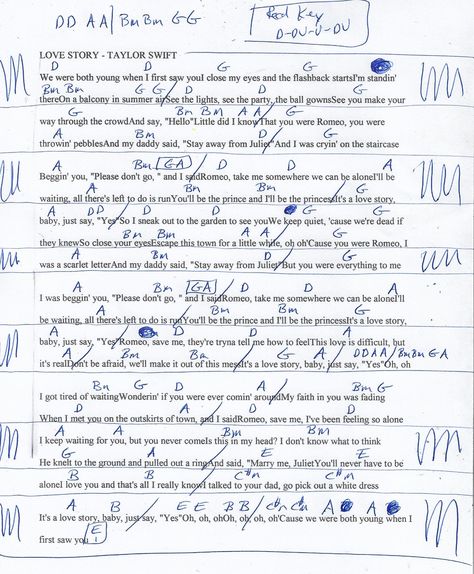 DD AA / Bm Bm GG
Red Key
D-DU-U-DU
LOVE STORY - TAYLOR SWIFT
D D G G
We were both young when I first saw youI close my eyes and the flashback startsI'm standin'
Bm Bm G G / D D G
thereOn a balcony in summer airSee the lights, see the party, the ball gownsSee you make your
G Bm Bm A A / G
way through the crowdAnd say, "Hello"Little did I knowThat you were Romeo, you were
A D G
throwin' pebblesAnd my daddy said, "Stay away from Juliet"And I was cryin' on the staircase
A Bm GA / D D A
Beggin' you, "Please don't go, " and I saidRomeo, take me somewhere we can be aloneI'll be
A Bm Bm G
waiting, all there's left to do is runYou'll be the prince and I'll be the princessIt's a love story,
A DD / D D G G
baby, just say, "Yes"So I sneak out to the garden to see youWe keep quiet, 'cause we're dead if
G Bm Bm A A / G
they knewSo close your eyesEscape this town for a little while, oh oh'Cause you were Romeo, I
A D G
was a scarlet letterAnd my daddy said, "Stay away from Juliet"But you were everything to me
A Bm GA / D D A
I was beggin' you, "Please don't go, " and I saidRomeo, take me somewhere we can be aloneI'll
A Bm Bm G
be waiting, all there's left to do is runYou'll be the prince and I'll be the princessIt's a love story,
A D D A
baby, just say, "Yes"Romeo, save me, they're tryna tell me how to feelThis love is difficult, but
A / Bm Bm G A / DDAA / BmBm G A
it's realDon't be afraid, we'll make it out of this messIt's a love story, baby, just say, "Yes"Oh, oh
Bm G D A / Bm G
I got tired of waitingWonderin' if you were ever comin' aroundMy faith in you was fading
D A / D D
When I met you on the outskirts of town, and I saidRomeo, save me, I've been feeling so alone
A A Bm Bm
I keep waiting for you, but you never comeIs this in my head? I don't know what to think
G A / E E
He knelt to the ground and pulled out a ringAnd said, "Marry me, JulietYou'll never have to be
B B C#m C#m
aloneI love you and that's all I really knowI talked to your dad, go pick out a white dress
A B / E E B B / C#m C#m A A
It's a love story, baby, just say, "Yes"Oh, oh, ohOh, oh, oh, oh'Cause we were both young when I
E
first saw you